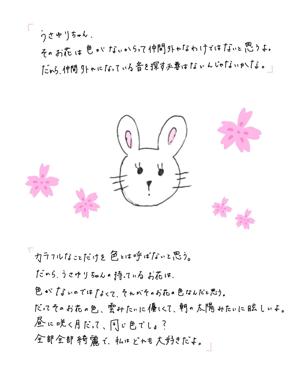 「
うさゆりちゃん、
そのお花は色がないからって仲間外れなわけではないと思うよ。
だから、仲間外れになっている音を探す必要はないんじゃないかな。」
「
カラフルなことだけを色とは呼ばないと思う。
だから、うさゆりちゃんの持っているお花は、
色がないのではなくて、それがそのお花の色なんだと思う。
だってそのお花の色、雲みたいに儚くて、朝の太陽みたいに眩しいよ。
昼に咲く月だって、同じ色でしょ？
全部全部綺麗で、私はどれも大好きだよ。
」